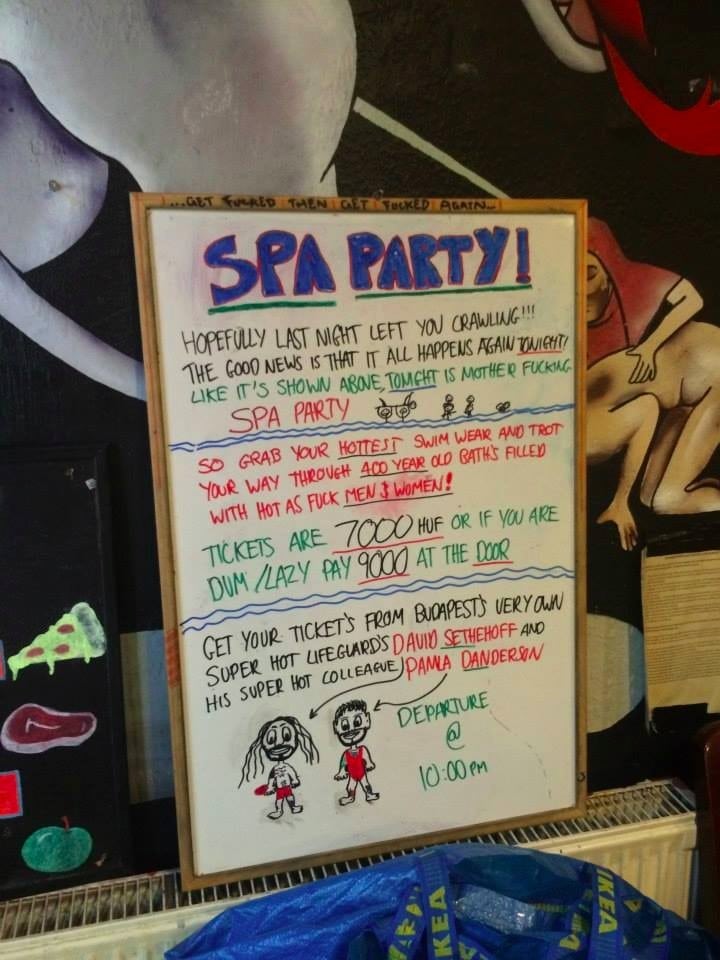 ...GET FUCKED THEN GET FUCKED AGAIN...
SPA PARTY!
HOPEFULLY LAST NIGHT LEFT YOU CRAWLING!!!
THE GOOD NEWS IS THAT IT ALL HAPPENS AGAIN TONIGHT!
LIKE IT'S SHOWN ABOVE, TONIGHT IS MOTHER FUCKING
SPA PARTY
SO GRAB YOUR HOTTEST SWIM WEAR AND TROT
YOUR WAY THROUGH 400 YEAR OLD BATH'S FILLED
WITH HOT AS FUCK MEN & WOMEN!
TICKETS ARE 7000 HUF OR IF YOU ARE
DUM/LAZY PAY 9000 AT THE DOOR
GET YOUR TICKET'S FROM BUDAPEST'S VERY OWN
SUPER HOT LIFEGUARD'S DAVID SETHEHOFF AND
HIS SUPER HOT COLLEAGUE PAMLA DANDERSON
DEPARTURE
@
10:00 PM
IKEA
IKEA